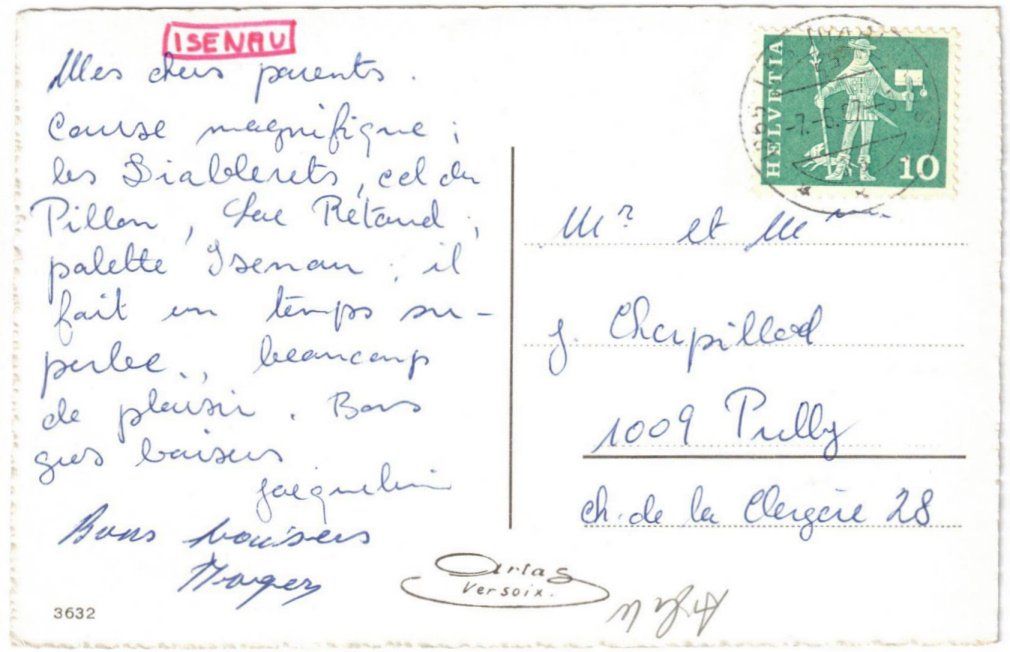 ISENAU
Mes chers parents.
Course magnifique ;
les Diablerets, col du
Pillon, Lac Retaud ;
palette Isenau ; il
fait un temps su-
perbe., beaucoup
de plaisir. Bons
gros baisers
Jacqueline
Bons baisers
Roger
3632
HELVETIA
10
-7.-6.
Mr et Mme
J. Charpillod
1009 Pully
ch. de la Clergère 28
Artas
Versoix.